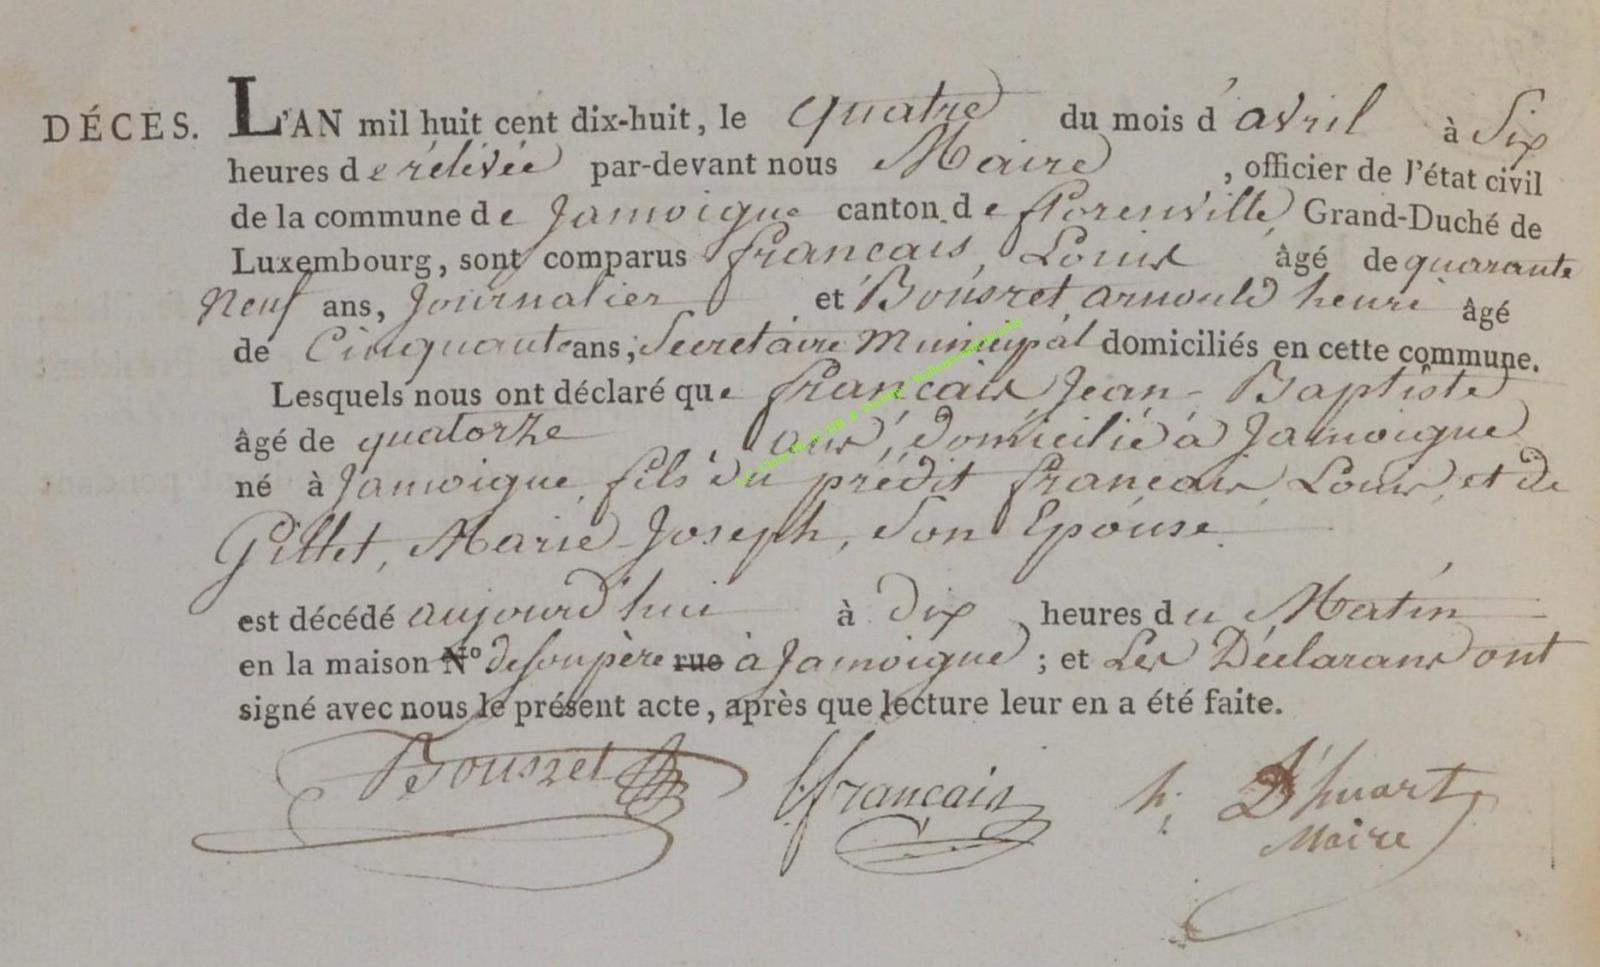 DÉCÈS. L'AN mil huit cent dix-huit, le quatre du mois d'avril à Six
heures de rélévée par-devant nous Maire, officier de l'état civil
de la commune de Jamoigne canton de florenville, Grand-Duché de
Luxembourg, sont comparus francais, Louis âgé de quarante
Neuf ans, Journalier et Bousret arnould henri âgé
de Cinquante ans, Secretaire Municipal domiciliés en cette commune.
Lesquels nous ont déclaré que francais Jean-Baptiste
âgé de quatorze ans, domicilié à Jamoigne
né à Jamoigne, fils du prédit francais, Louis, et de
Gillet, Marie-Joseph, Son Epouse.
est décédé aujourd'hui à dix heures du Matin
en la maison N° de son père rue à Jamoigne ; et Les Déclarans ont
signé avec nous le présent acte, après que lecture leur en a été faite.
Bousret francais h. D'huart
Maire